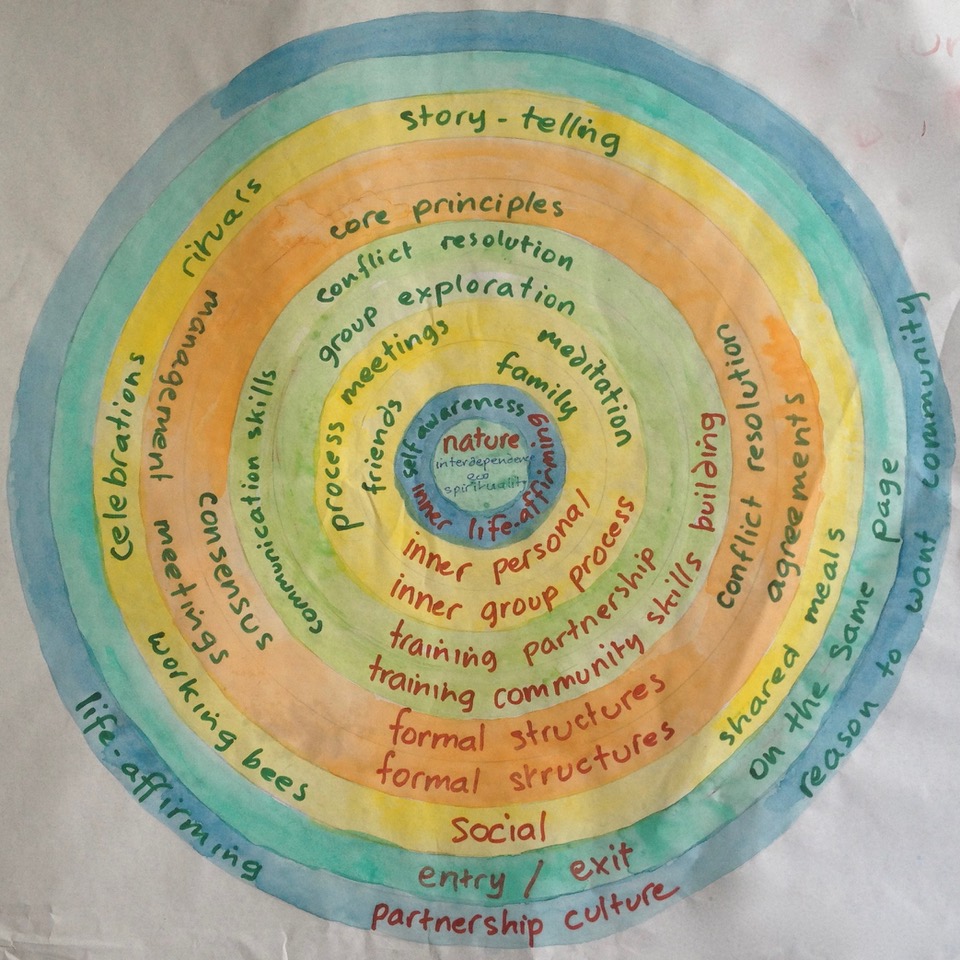 story - telling
rituals
celebrations
working bees
shared meals
social
core principles
management meetings
consensus
conflict resolution
agreements
formal structures
formal structures
conflict resolution
communication skills
group exploration
meditation
training partnership
training community skills building
process meetings
friends
family
inner personal
inner group process
self awareness
inner life-affirming
nature
interdependence
eco
spirituality
on the same page
entry / exit
life-affirming
reason to want community
partnership culture